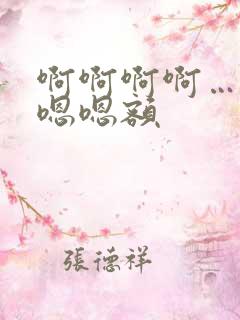 啊啊啊啊…
嗯嗯额
张德祥